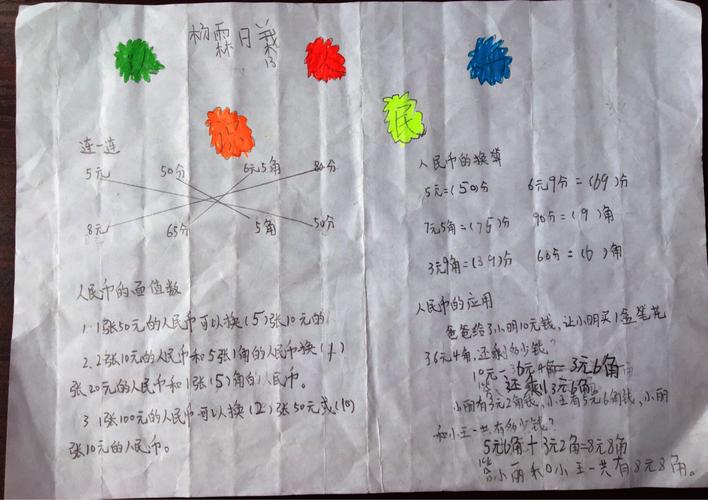 杨霖日羲
民
连一连
5元 50分 6元5角 80分
8元 65分 5角 50分
人民币的面值数
1. 1张50元的人民币可以换(5)张10元的。
2. 2张10元的人民币和5张1角的人民币换(1)
张20元的人民币和1张(5)角的人民币。
3 1张100元的人民币可以换(2)张50元或(10)
张10元的人民币。
人民币的换算
5元=(50)分 6元9分=(69)分
7元5角=(75)分 90分=(9)角
3元9角=(39)分 60分=(6)角
人民币的应用
爸爸给了小明10元钱,让小明买1盒笔花
了6元4角,还剩多少钱?
10元-6元4角=3元6角
答:还剩3元6角。
小丽有3元2角钱,小王有5元6角钱,小丽
和小王一共有多少钱?
5元6角+3元2角=8元8角
答:小丽和小王一共有8元8角。